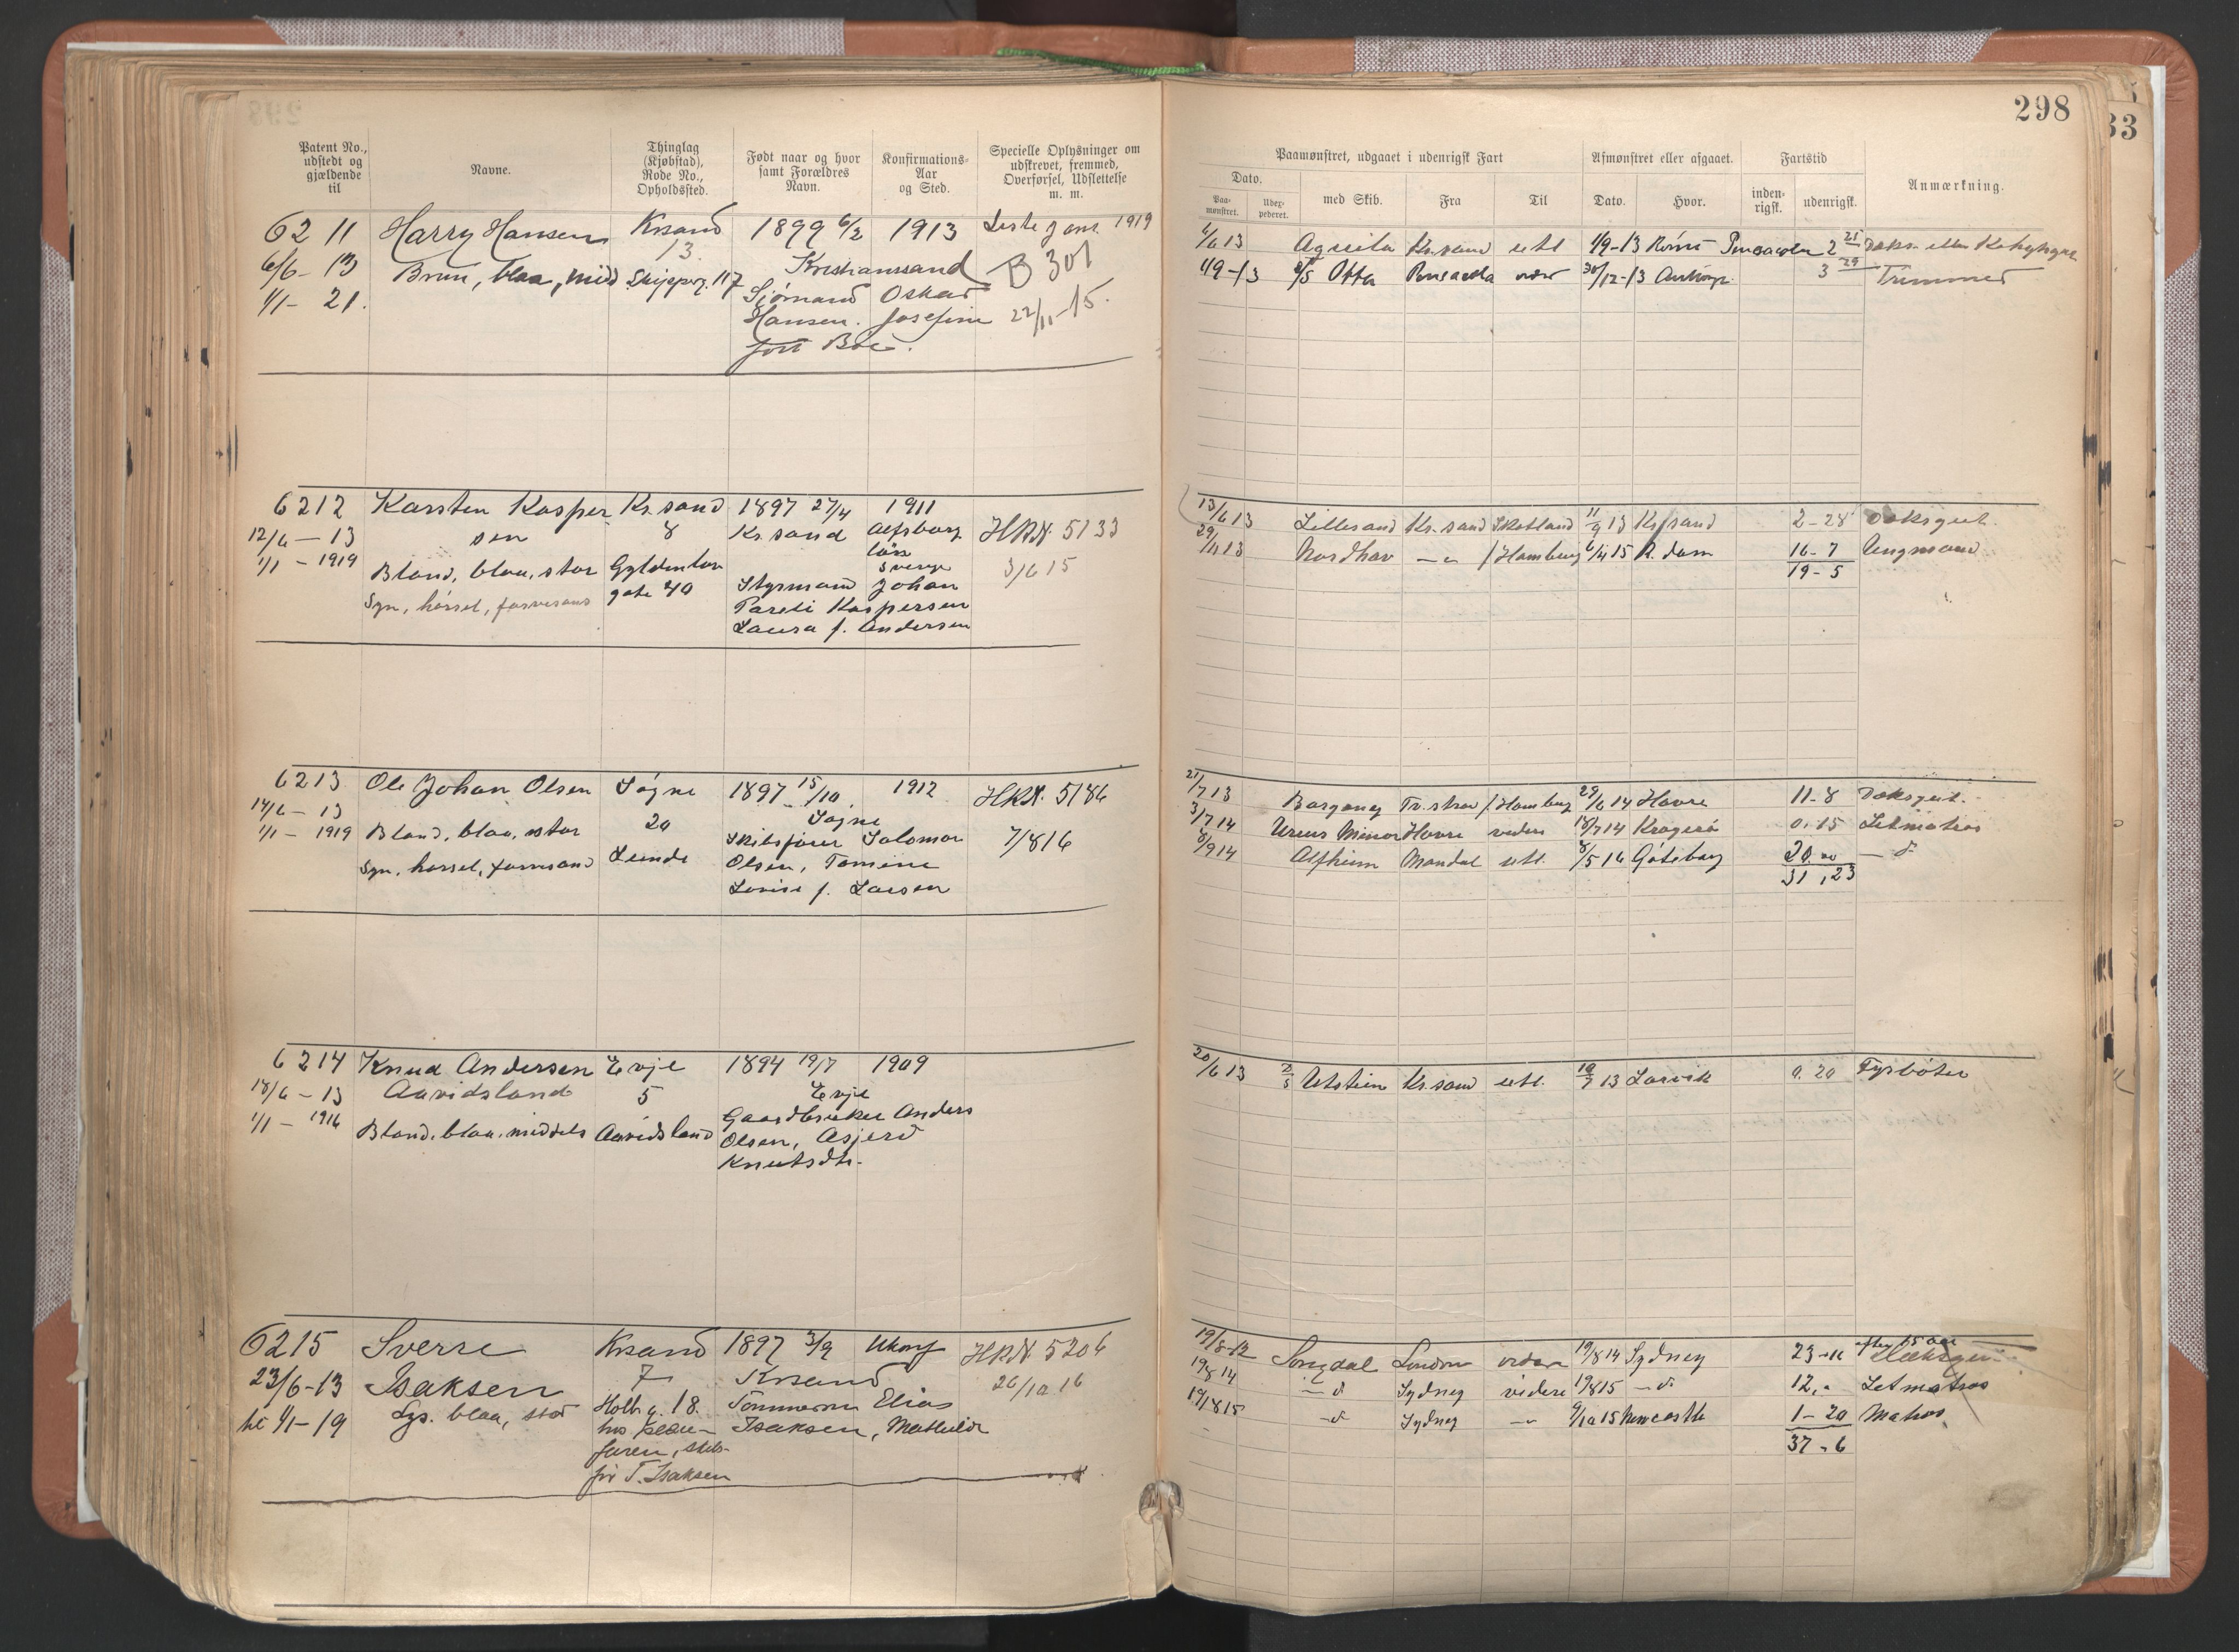 298
33
Patent No.,
udstedt og
gjældende
til
Navne.
Thinglag
(Kjøbstad),
Rode No.,
Opholdssted.
Født naar og hvor
samt Forældres
Navn.
Konfirmations-
Aar
og Sted.
Specielle Oplysninger om
udskrevet, fremmed,
Overførsel, Udslettelse
m. m.
Paamønstret, udgaaet i udenrigsk Fart
Afmønstret eller afgaaet.
Fartstid
Anmærkning.
Dato.
Paa-
mønstret.
Udex-
pederet.
med Skib.
Fra
Til
Dato.
Hvor.
inden-
rigsk.
udenrigsk.
6211 Harry Hansen Krsand 1899 6/2 1913 Liste J 1919
6/6-13 Brun, blaa, midd 13 Kristianssand B 301
1/1-21. Skipperg. 117 Sjømand Oskar
Hansen. Josefine 22/11-15.
født Boe.
6/6 13 Aquila Kr.sand utl 1/9-13 Rømt Pensacola 2 21
1/9-13 Otta Pensacola 30/12-13 3 29 Trimmer
6212 Karsten Kasper Kr.sand 1897 27/4 1911
12/6-13 sen 8 Kr.sand Alfsborg HRN. 5133
1/1-1919 Blond, blaa, stor Gyldenløv län
Sverge 3/6 15
Syn, hørsel, farvesans gate 40 Styrmand Johan
Pareli Kaspersen
Laura f. Andersen
13/6 13 Lillesand Kr.sand Skotland 11/9 13 Kr.sand 2-28 Dæksgut.
29/11 13 Nordhav —"— /Hamburg 6/4 15 R.dam 16-7 Ungmand
19-5
6213 Ole Johan Olsen Søgne 1897 15/10. 1912 HRN. 5186
14/6-13 20 Søgne
1/1-1919 Blond, blaa, stor Skibsfører Salomon 7/8 16
Syn, hørsel, farvesand Lunde Olsen, Tomine
Lovise f. Larsen
21/7 13 /Hamburg 29/6 14 Havre 11-8 Dæksgut.
3/7 14 Ursus Minor Havre videre 18/7 14 Kragerø 0.15 Letmatros
8/9 14 Alfheim Mandal utl. 8/5 16 Gøteborg 20.00
31,23
6214 Knud Andersen Evje 1894 19/7 1909
18/6-13 Aavidsland 5 Evje
1/1-1916 Blond, blaa, middels Aavidsland Gaardbruker Anders
Olsen, Asjerd
Knutsdtr.
20/6 13 Utstein Kr.sand utl. 10/7 13 Larvik 0.20 Fyrbøter
6215 Sverre Krsand 1897 3/9 Ukonf HRN 5206
23/6-13 Isaksen 7 Krsand 26/10 16
til 1/1-19 Lys. blaa, stor Holb.g. 18. Tømmerm Elias
hos Isaksen, Mathilde
faren, skibs-
før T. Isaksen
19/8-13 Songdal London videre 19/8 14 Sydney 23-11
19/8 14 —"— Sydney videre 19/8 15 —"— 12," Letmatros
19/8 15 —"— Sydney —"— 9/10 15 Newcastle 1-20 Matros
37-6